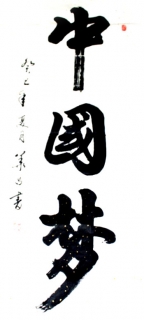 中國梦
癸巳年夏月
书